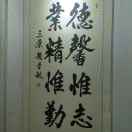 德馨惟志
業精惟勤